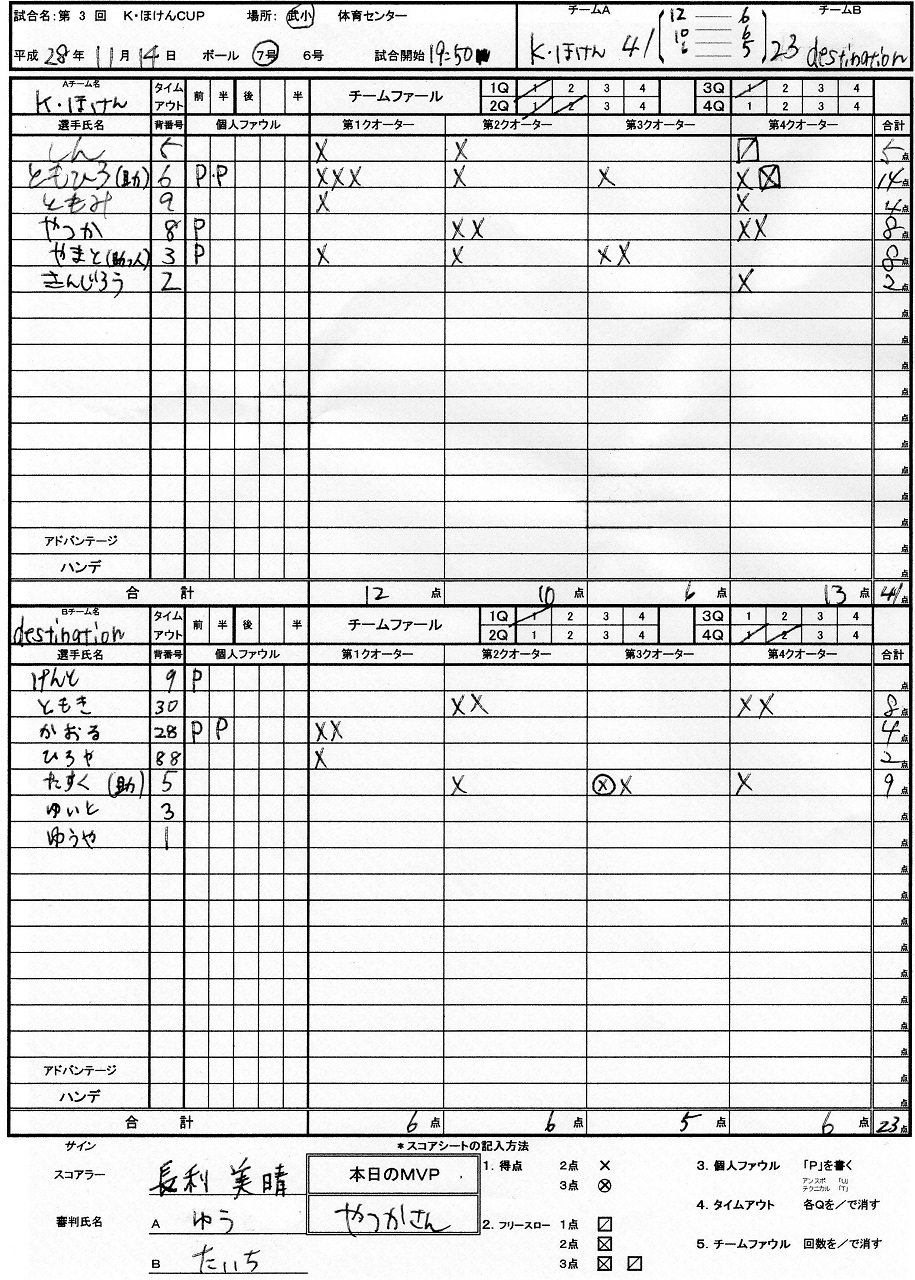 試合名:第 3 回 K・ほけんCUP 場所: 武小 体育センター
平成 28 年 11 月 14 日 ボール 7号 6号 試合開始 19:50
チームA チームB
K・ほけん 41 23 destination
12 6
10 6
6 5
Aチーム名 タイムアウト 前 半 後 半 チームファール 1Q 1 2 3 4 3Q 1 2 3 4
K・ほけん 2Q 1 2 3 4 4Q 1 2 3 4
選手氏名 背番号 個人ファウル 第1クオーター 第2クオーター 第3クオーター 第4クオーター 合計
しん 5 X X 〼 5点
ともひろ(助) 6 P・P XXX X X X ☒ 14点
ともみ 9 X X 4点
やつか 8 P XX XX 8点
やまと(助っ人) 3 P X X XX 8点
きんじろう 2 X 2点
点
点
点
点
点
点
点
点
点
アドバンテージ 点
ハンデ 点
合 計 12 点 10 点 6 点 13 点 41点
Bチーム名 タイムアウト 前 半 後 半 チームファール 1Q 1 2 3 4 3Q 1 2 3 4
destination 2Q 1 2 3 4 4Q 1 2 3 4
選手氏名 背番号 個人ファウル 第1クオーター 第2クオーター 第3クオーター 第4クオーター 合計
けんと 9 P 点
ともき 30 XX XX 8点
かおる 28 P P XX 4点
ひろや 88 X 2点
たすく (助) 5 X ⊗X X 9点
ゆいと 3 点
ゆうや 1 点
点
点
点
点
点
点
点
点
アドバンテージ 点
ハンデ 点
合 計 6 点 6 点 5 点 6 点 23点
サイン
スコアラー 長利 美晴
審判氏名 A ゆう
B たいち
本日のMVP
やつかさん
*スコアシートの記入方法
1. 得点 2点 ×
3点 ⊗
2. フリースロー 1点 〼
2点 ☒
3点 ☒ 〼
3. 個人ファウル 「P」を書く
アンスポ 「U」
テクニカル 「T」
4. タイムアウト 各Qを/で消す
5. チームファウル 回数を/で消す